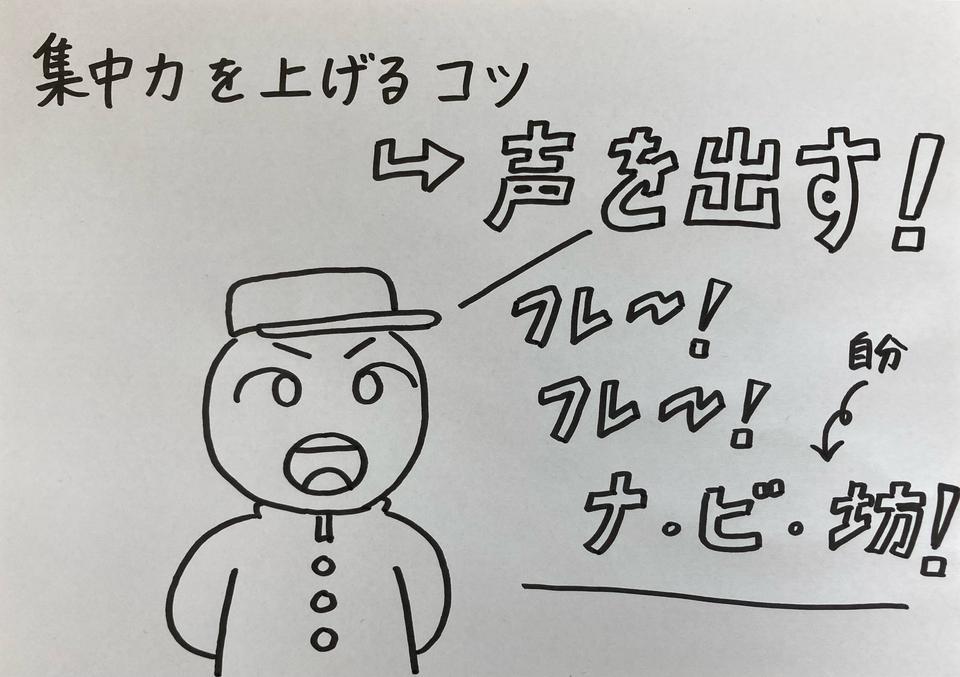 集中力を上げるコツ
声を出す!
フレ〜!
フレ〜!
自分
ナ・ビ・坊!